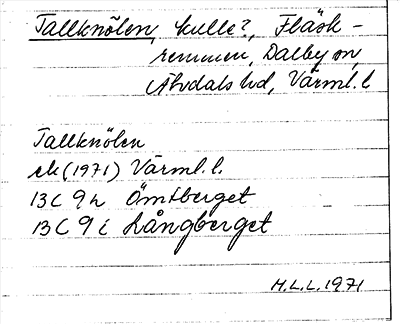 Tallknölen, kulle?, Fläsk-
remmen, Dalby sn,
Älvdals hd, Värml. l
Tallknölen
ek (1971) Värml. l.
13C 9h Ömtberget
13C 9i Långberget
H.L.L. 1971